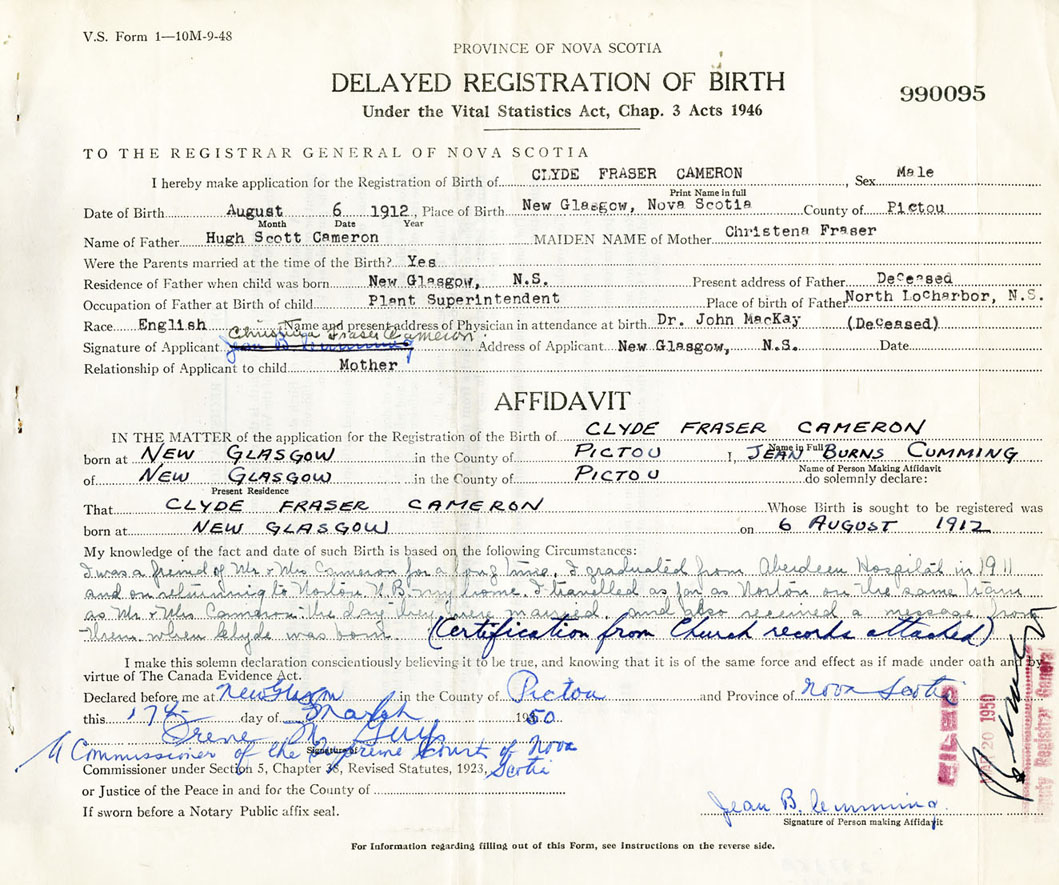 V.S. Form 1—10M-9-48
PROVINCE OF NOVA SCOTIA
DELAYED REGISTRATION OF BIRTH
990095
Under the Vital Statistics Act, Chap. 3 Acts 1946
TO THE REGISTRAR GENERAL OF NOVA SCOTIA
I hereby make application for the Registration of Birth of CLYDE FRASER CAMERON, Sex Male
Print Name in full
Date of Birth August 6 1912, Place of Birth New Glasgow, Nova Scotia County of Pictou
Month Date Year
Name of Father Hugh Scott Cameron MAIDEN NAME of Mother Christena Fraser
Were the Parents married at the time of the Birth? Yes
Residence of Father when child was born New Glasgow, N.S. Present address of Father Deceased
Occupation of Father at Birth of child Plant Superintendent Place of birth of Father North Locharbor, N.S.
Race English Name and present address of Physician in attendance at birth Dr. John MacKay (Deceased)
Signature of Applicant Jean B. Cumming Christena Fraser Cameron Address of Applicant New Glasgow, N.S. Date
Relationship of Applicant to child Mother
AFFIDAVIT
IN THE MATTER of the application for the Registration of the Birth of CLYDE FRASER CAMERON
Name in Full
born at NEW GLASGOW in the County of PICTOU I, JEAN BURNS CUMMING
Name of Person Making Affidavit
of NEW GLASGOW in the County of PICTOU do solemnly declare:
Present Residence
That CLYDE FRASER CAMERON Whose Birth is sought to be registered was
born at NEW GLASGOW on 6 AUGUST 1912
My knowledge of the fact and date of such Birth is based on the following Circumstances:
I was a freind of Mr & Mrs Cameron for a long time. I graduated from Aberdeen Hospital in 1911
and on returning to Norton N.B. my home. I travelled as far as Norton on the same train
as Mr & Mrs Cameron the day they were married and also received a message from
them when Clyde was born. (Certification from Church records attached)
I make this solemn declaration conscientiously believing it to be true, and knowing that it is of the same force and effect as if made under oath and by
virtue of The Canada Evidence Act.
Declared before me at New Glasgow in the County of Pictou and Province of Nova Scotia
this 17th day of March 1950
Irene M. Guys
Signature of
A Commissioner of the Supreme Court of Nova Scotia
Commissioner under Section 5, Chapter 38, Revised Statutes, 1923,
or Justice of the Peace in and for the County of
If sworn before a Notary Public affix seal.
Jean B. Cumming
Signature of Person making Affidavit
For Information regarding filling out of this Form, see Instructions on the reverse side.
FILED
MAR 20 1950
Deputy Registrar General